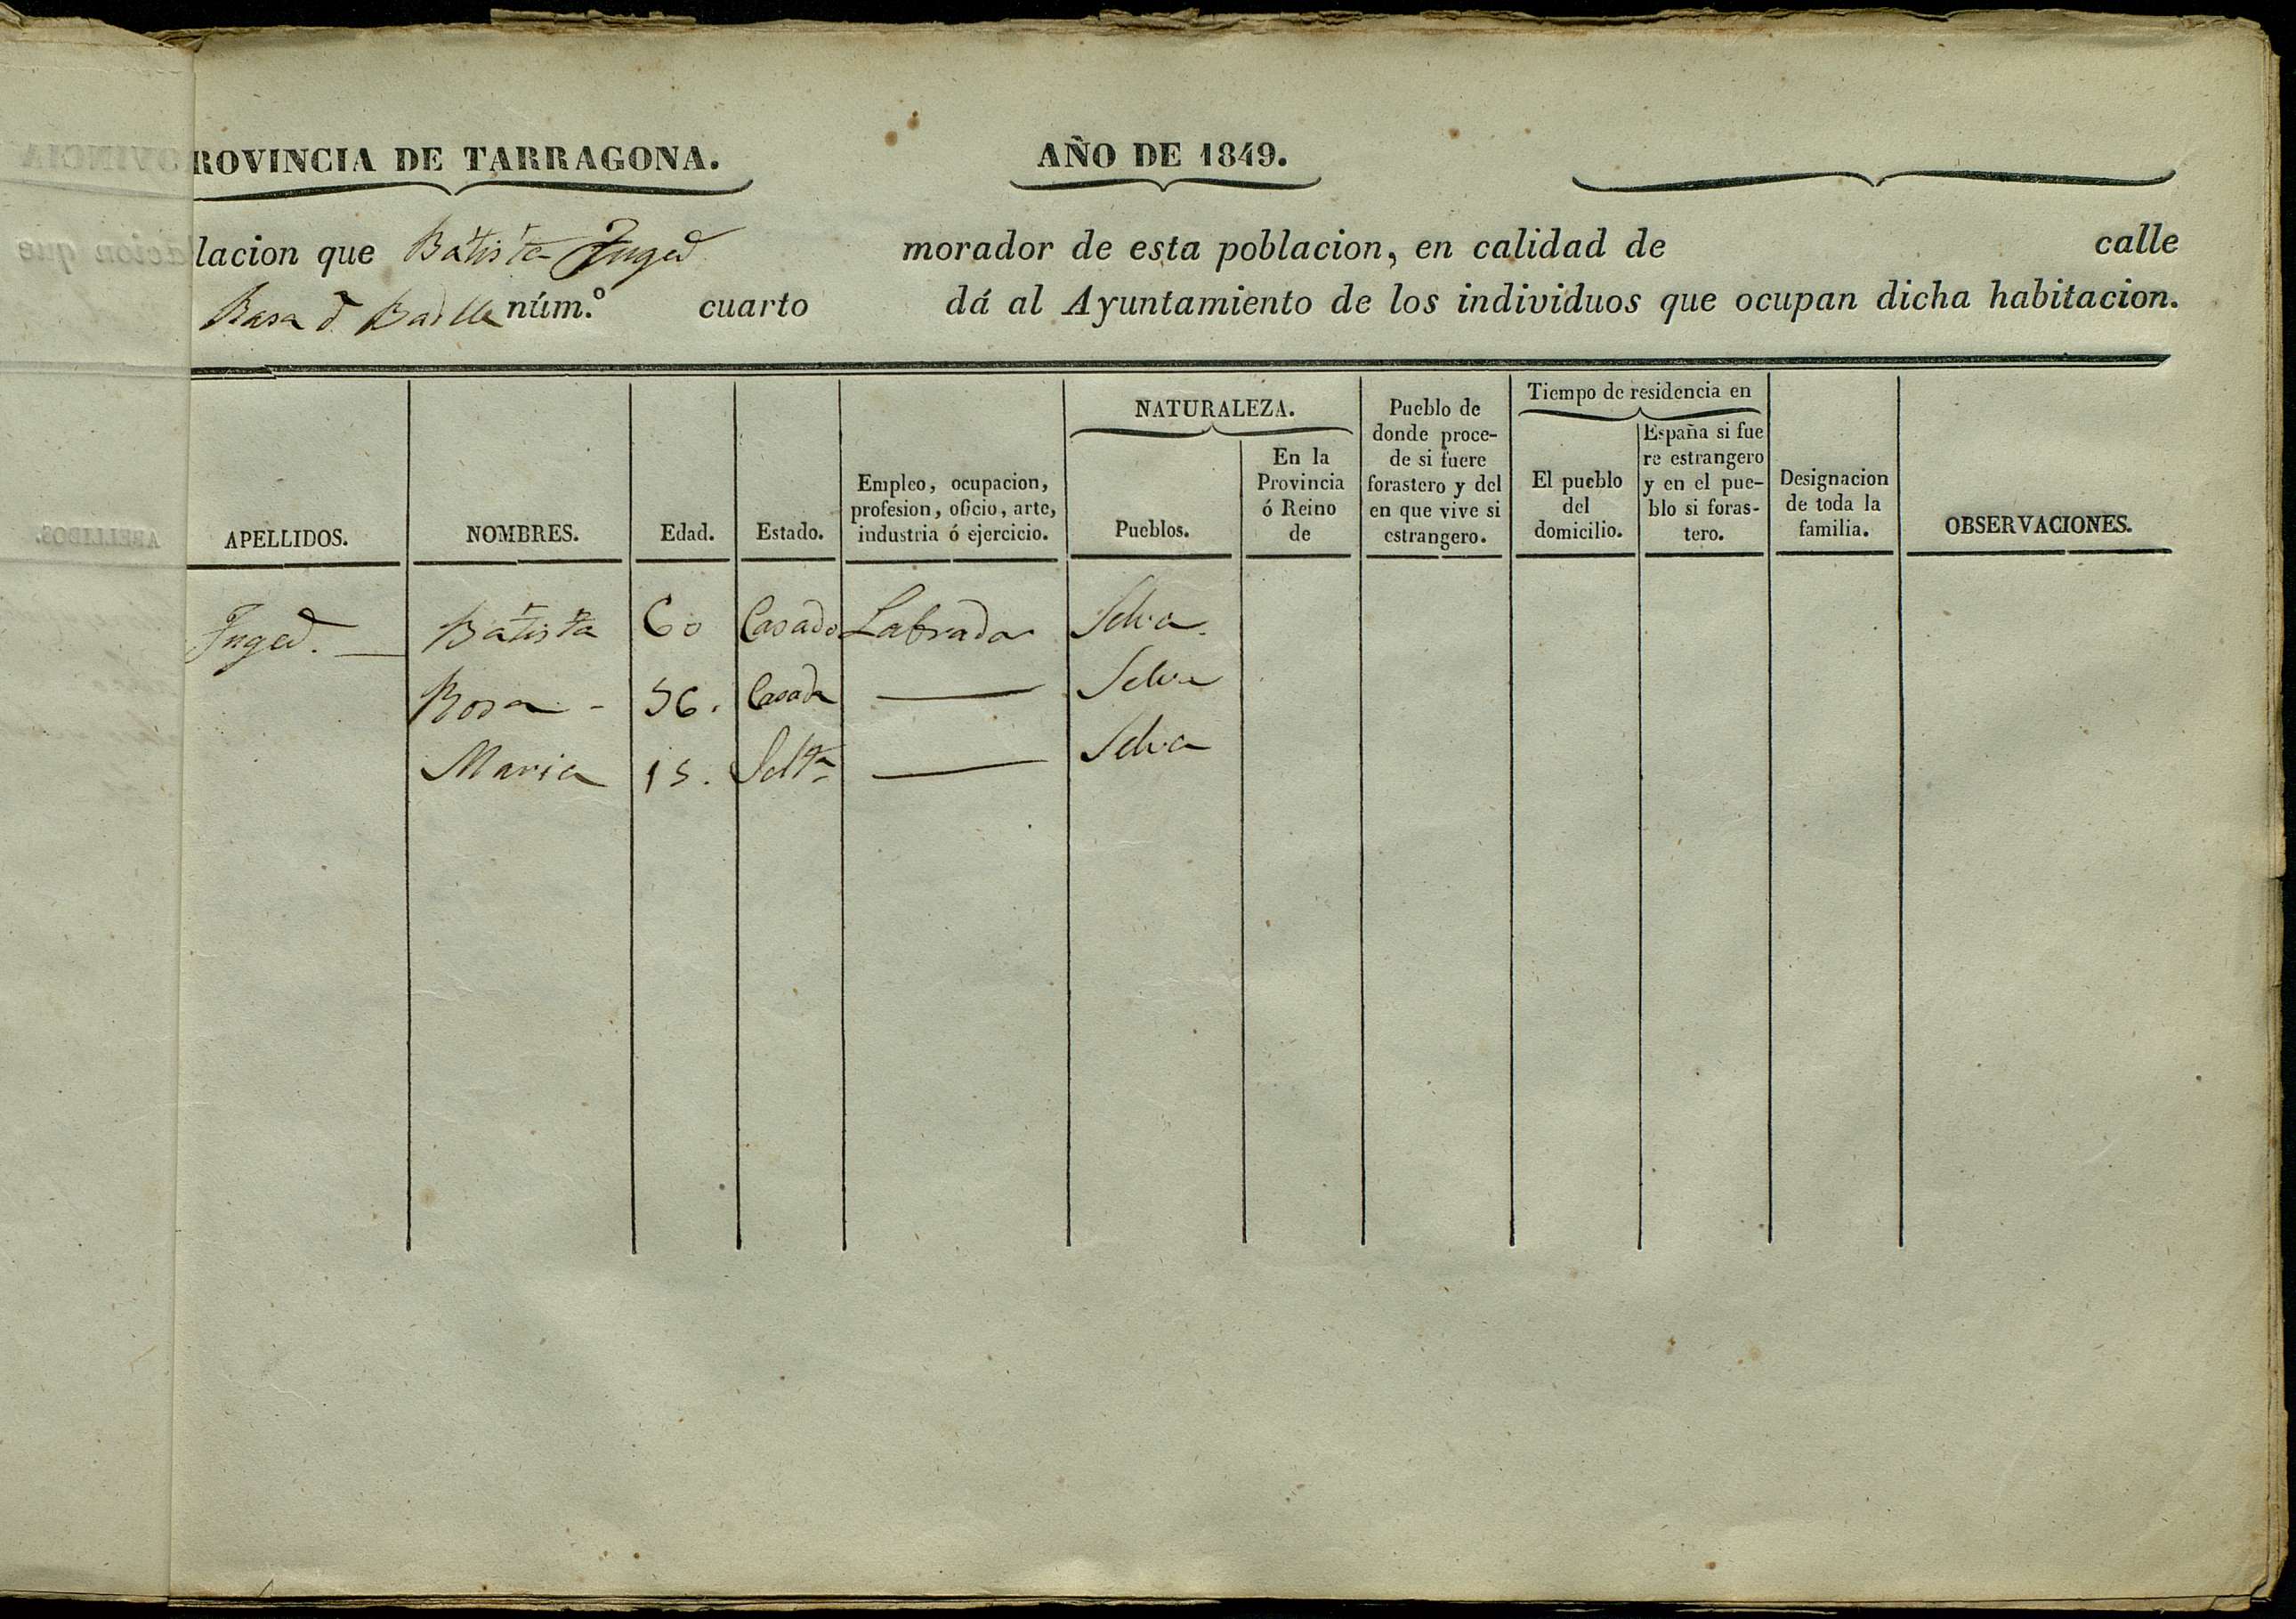 ROVINCIA DE TARRAGONA. AÑO DE 1849.
lacion que Batista morador de esta poblacion, en calidad de calle
núm.º cuarto dá al Ayuntamiento de los individuos que ocupan dicha habitacion.
APELLIDOS.
NOMBRES.
Edad.
Estado.
Empleo, ocupacion,
profesion, oficio, arte,
industria ó ejercicio.
NATURALEZA.
Pueblos.
En la
Provincia
ó Reino
de
Pueblo de
donde proce-
de si fuere
forastero y del
en que vive si
estrangero.
Tiempo de residencia en
El pueblo
del
domicilio.
España si fue
re estrangero
y en el pue-
blo si foras-
tero.
Designacion
de toda la
familia.
OBSERVACIONES.
Batista 60 Casado Labrador Selva.
Rosa - 56. Casada — Selva
Maria 15. Solt.ª — Selva